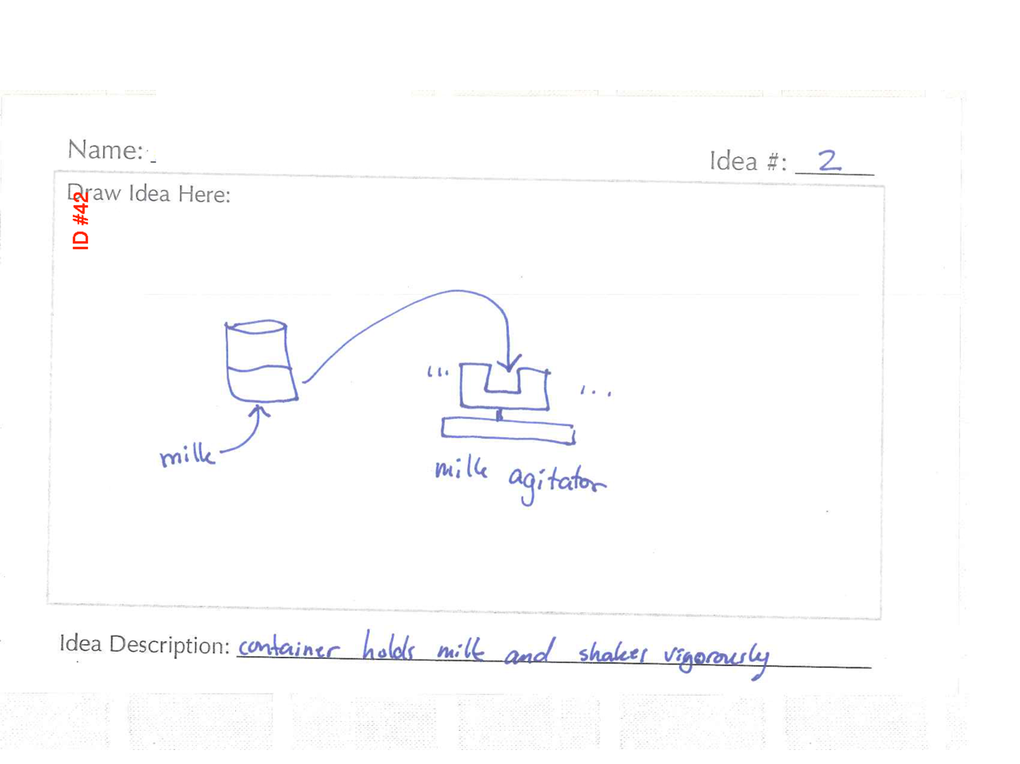 Name:
Idea #: 2
Draw Idea Here:
ID #42
milk
milk agitator
Idea Description: container holds milk and shakes vigorously